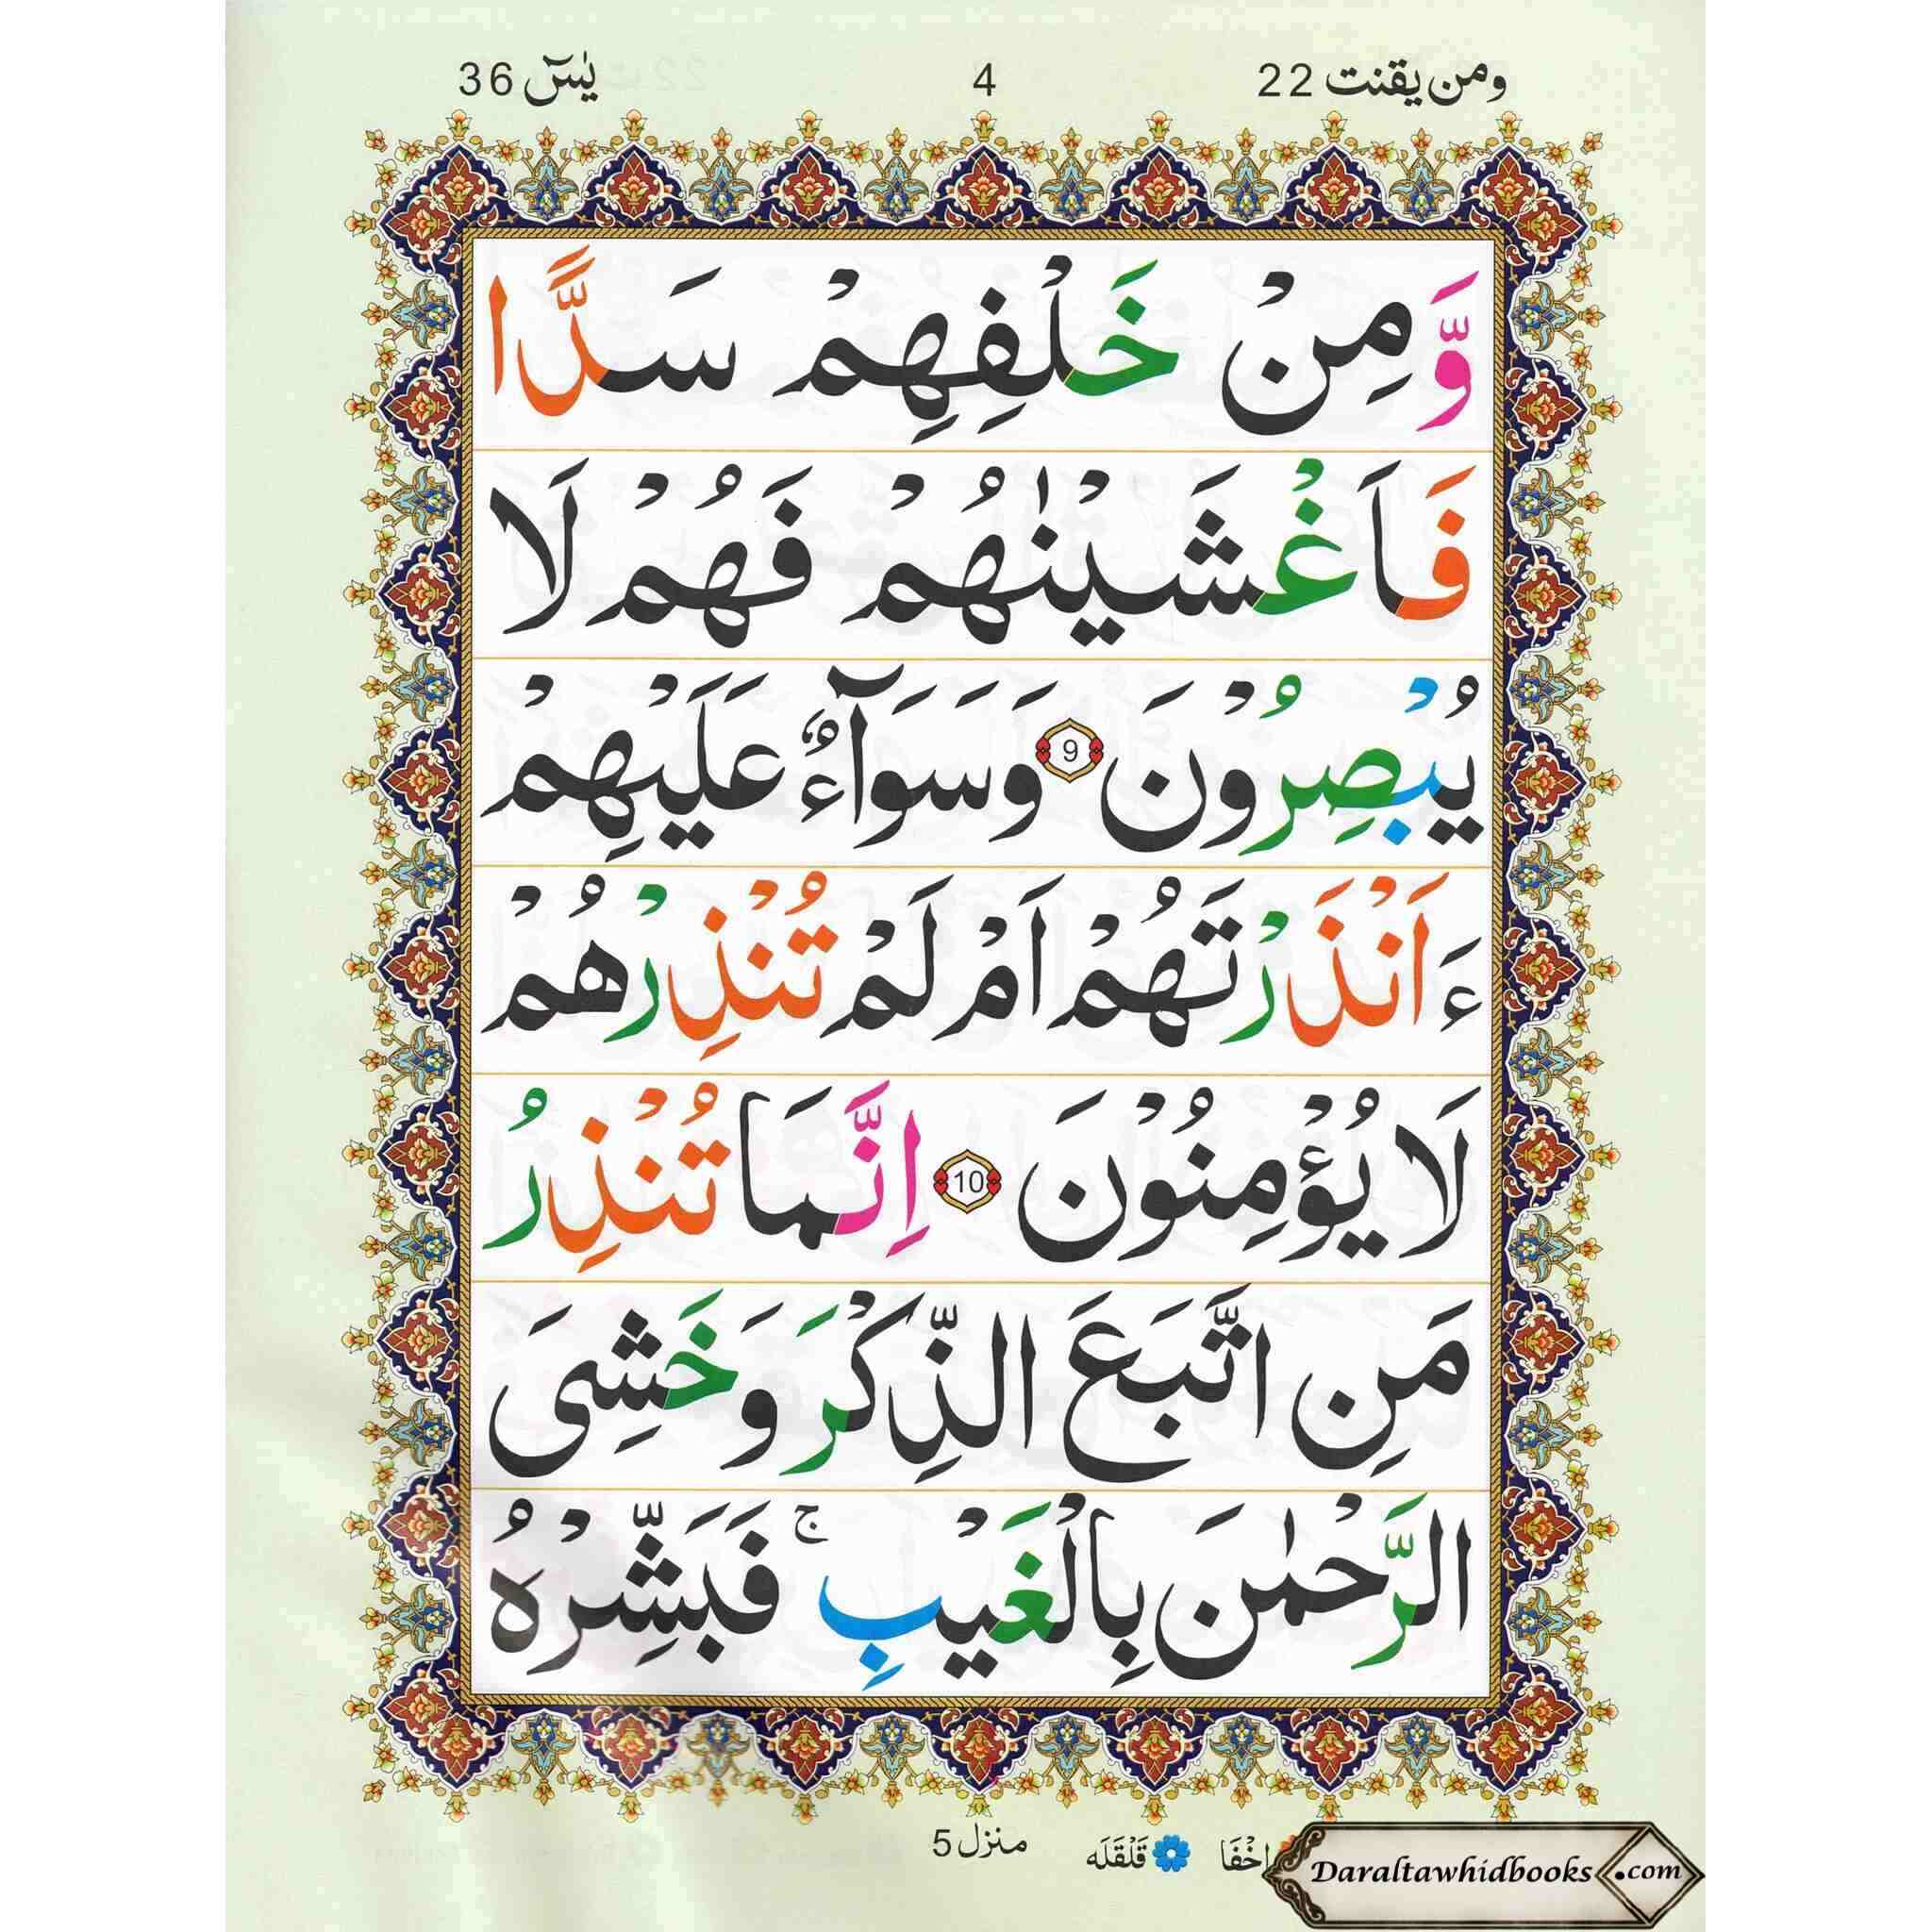 ومن یقنت 22
4
یٰسٓ 36
وَّمِنْ خَلْفِهِمْ سَدًّا
فَاَغْشَیْنٰهُمْ فَهُمْ لَا
یُبْصِرُوْنَ 9 وَسَوَآءٌ عَلَیْهِمْ
ءَاَنْذَرْتَهُمْ اَمْ لَمْ تُنْذِرْهُمْ
لَا یُؤْمِنُوْنَ 10 اِنَّمَا تُنْذِرُ
مَنِ اتَّبَعَ الذِّكْرَ وَخَشِیَ
الرَّحْمٰنَ بِالْغَیْبِ ۚ فَبَشِّرْهُ
اِخْفَا قَلْقَلَه منزل 5
Daraltawhidbooks.com